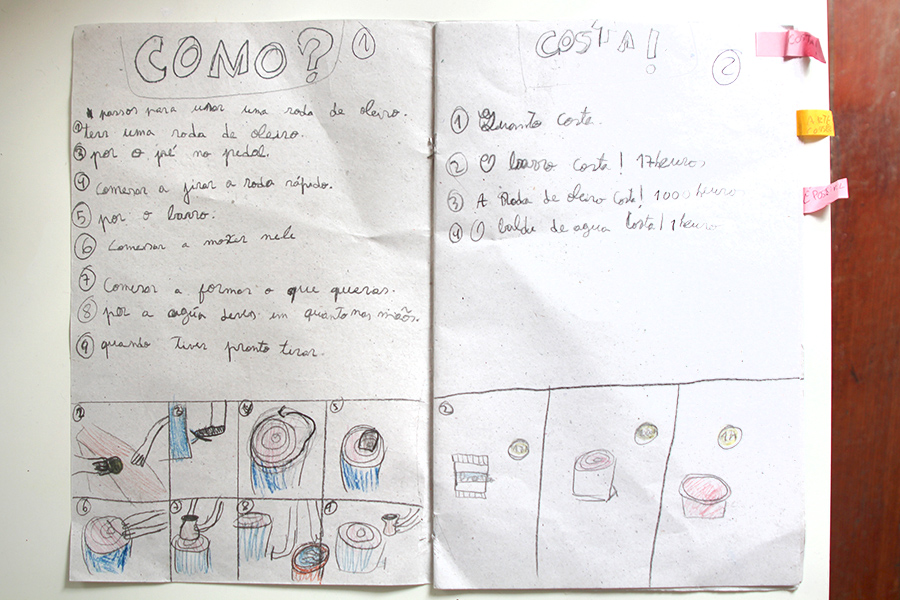 COMO? 1
passos para usar uma roda de oleiro.
ter uma roda de oleiro.
3 por o pé no pedal.
4 Comesar a jirar a roda rápido.
5 por o barro.
6 Comesar a mexer nele
7 Comesar a formar o que queras.
8 por a agúa em quanto nas mãos.
9 quando tiver pronto tirar.
6
COSTA! 2
1 Quanto costa.
2 O barro costa! 17 heuros
3 A Roda de oleiro costa! 1000 heuro
4 O balde de agua Costa! 1 heuro
2